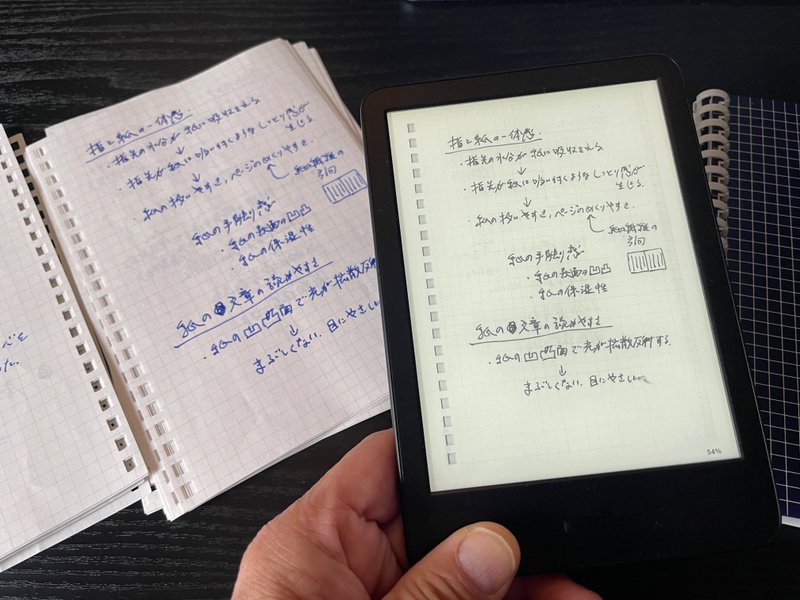 指と紙の一体感
・指先の水分が紙に吸収される
↓
・指先が紙に吸い付くようなしっとり感が生じる
↓
・紙の扱いやすさ、ページのめくりやすさ
紙の繊維の方向
紙の手触り感
・紙の表面の凹凸
・紙の保湿性
紙の文章の読みやすさ
・紙の凹凸面で光が拡散反射
↓
まぶしくない、目にやさしい
指と紙の一体感
・指先の水分が紙に吸収される
↓
・指先が紙に吸い付くようなしっとり感が生じる
↓
・紙の扱いやすさ、ページのめくりやすさ
紙の繊維の方向
紙の手触り感
・紙の表面の凹凸
・紙の保湿性
紙の文章の読みやすさ
・紙の凹凸面で光が拡散反射する
↓
まぶしくない、目にやさしい
54%